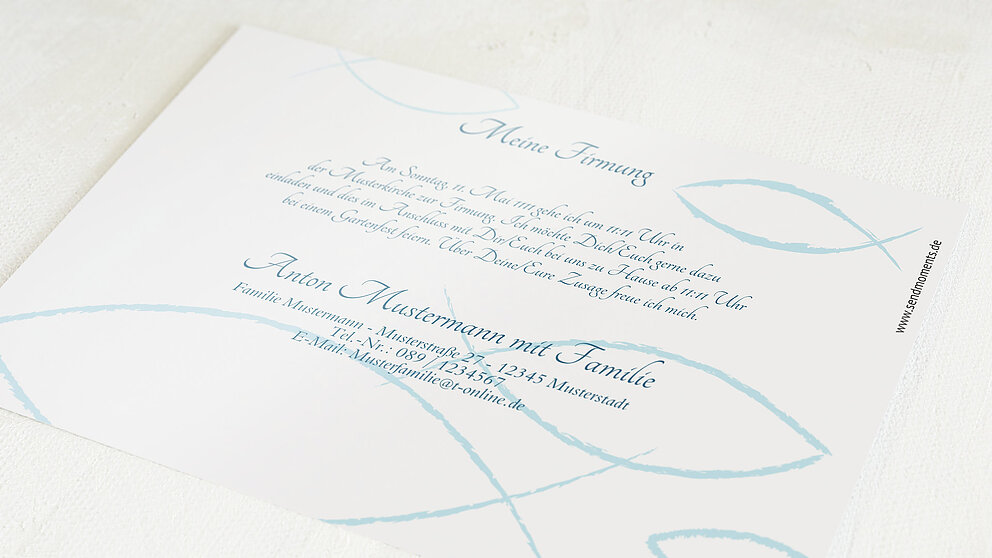 Meine Firmung
Am Sonntag, 11. Mai 1111 gehe ich um 11:11 Uhr in
der Musterkirche zur Firmung. Ich möchte Dich/Euch gerne dazu
einladen und dies im Anschluss mit Dir/Euch bei uns zu Hause ab 11:11 Uhr
bei einem Gartenfest feiern. Über Deine/Eure Zusage freue ich mich.
Anton Mustermann mit Familie
Familie Mustermann - Musterstraße 27 - 12345 Musterstadt
Tel.-Nr.: 089 / 1234567
E-Mail: Musterfamilie@t-online.de
www.sendmoments.de